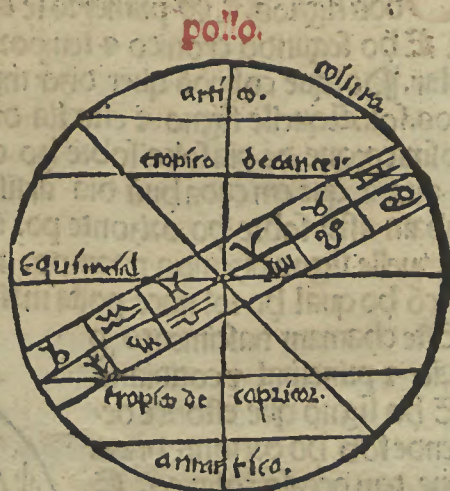 pollo.
colura
artico.
tropico de cancer.
Equinocial
♊ ♋
♉ ♌
♈ ♍
♓ ♎
♒ ♏
♑ ♐
tropico de capricor.
antartico.